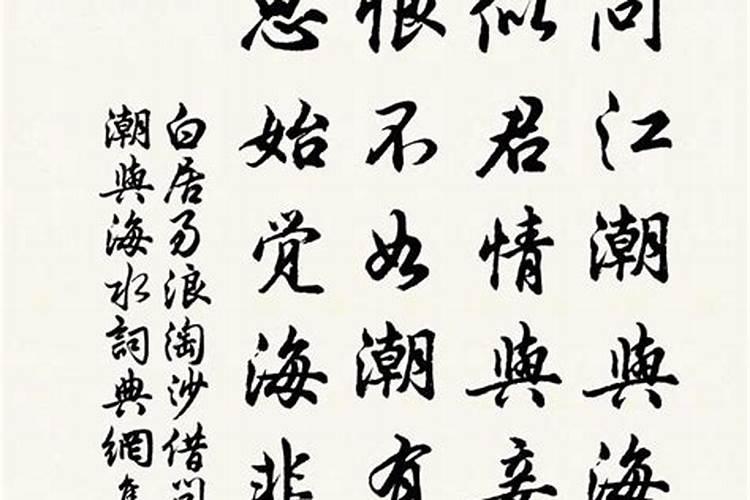 问江潮與海
似君情與妾
恨不如潮有
思始觉海非
白居易浪淘沙借问
潮與海水詞典網集